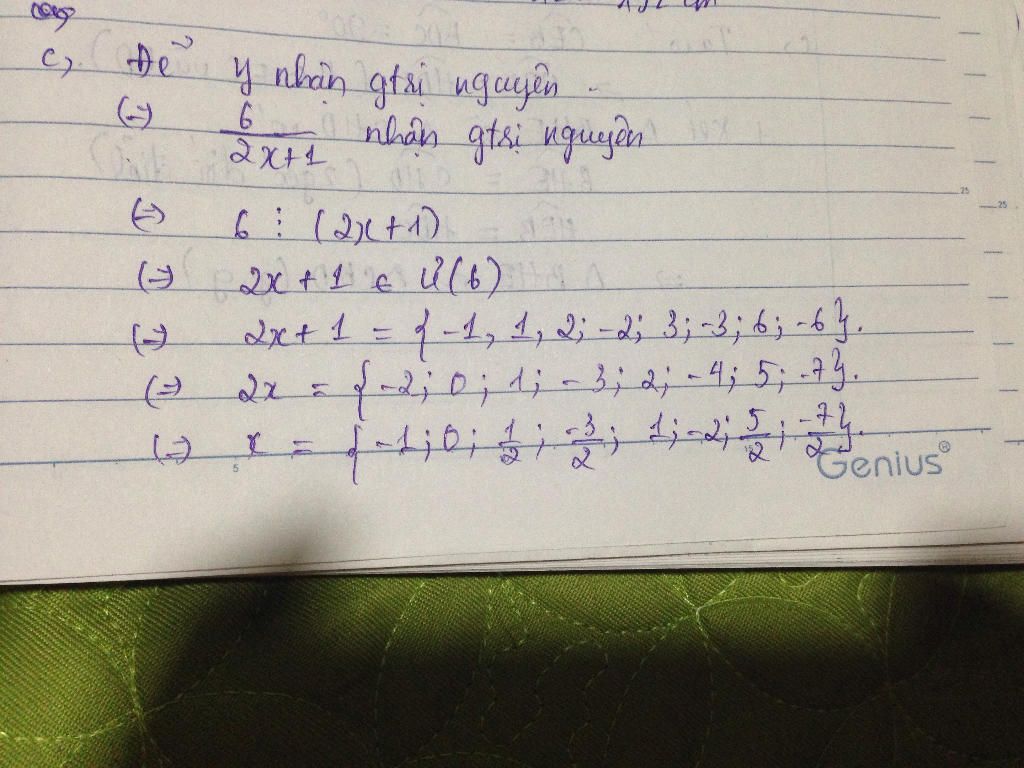 c, Để y nhận gtrị nguyên.
(=) 6/2x+1 nhận gtrị nguyên
(=) 6 ⋮ (2x+1)
(=) 2x+1 ∈ Ư(6)
(=) 2x+1 = {-1, 1, 2; -2; 3; -3; 6; -6}.
(=) 2x = {-2; 0; 1; -3; 2; -4; 5; -7}.
(=) x = {-1; 0; 1/2; -3/2; 1; -2; 5/2; -7/2}.
5
25
25
Genius®